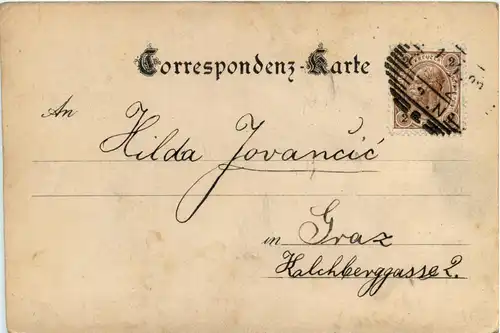 Correspondenz-Karte
An
Hilda Jovančić
in Graz
Kalchberggasse 2.